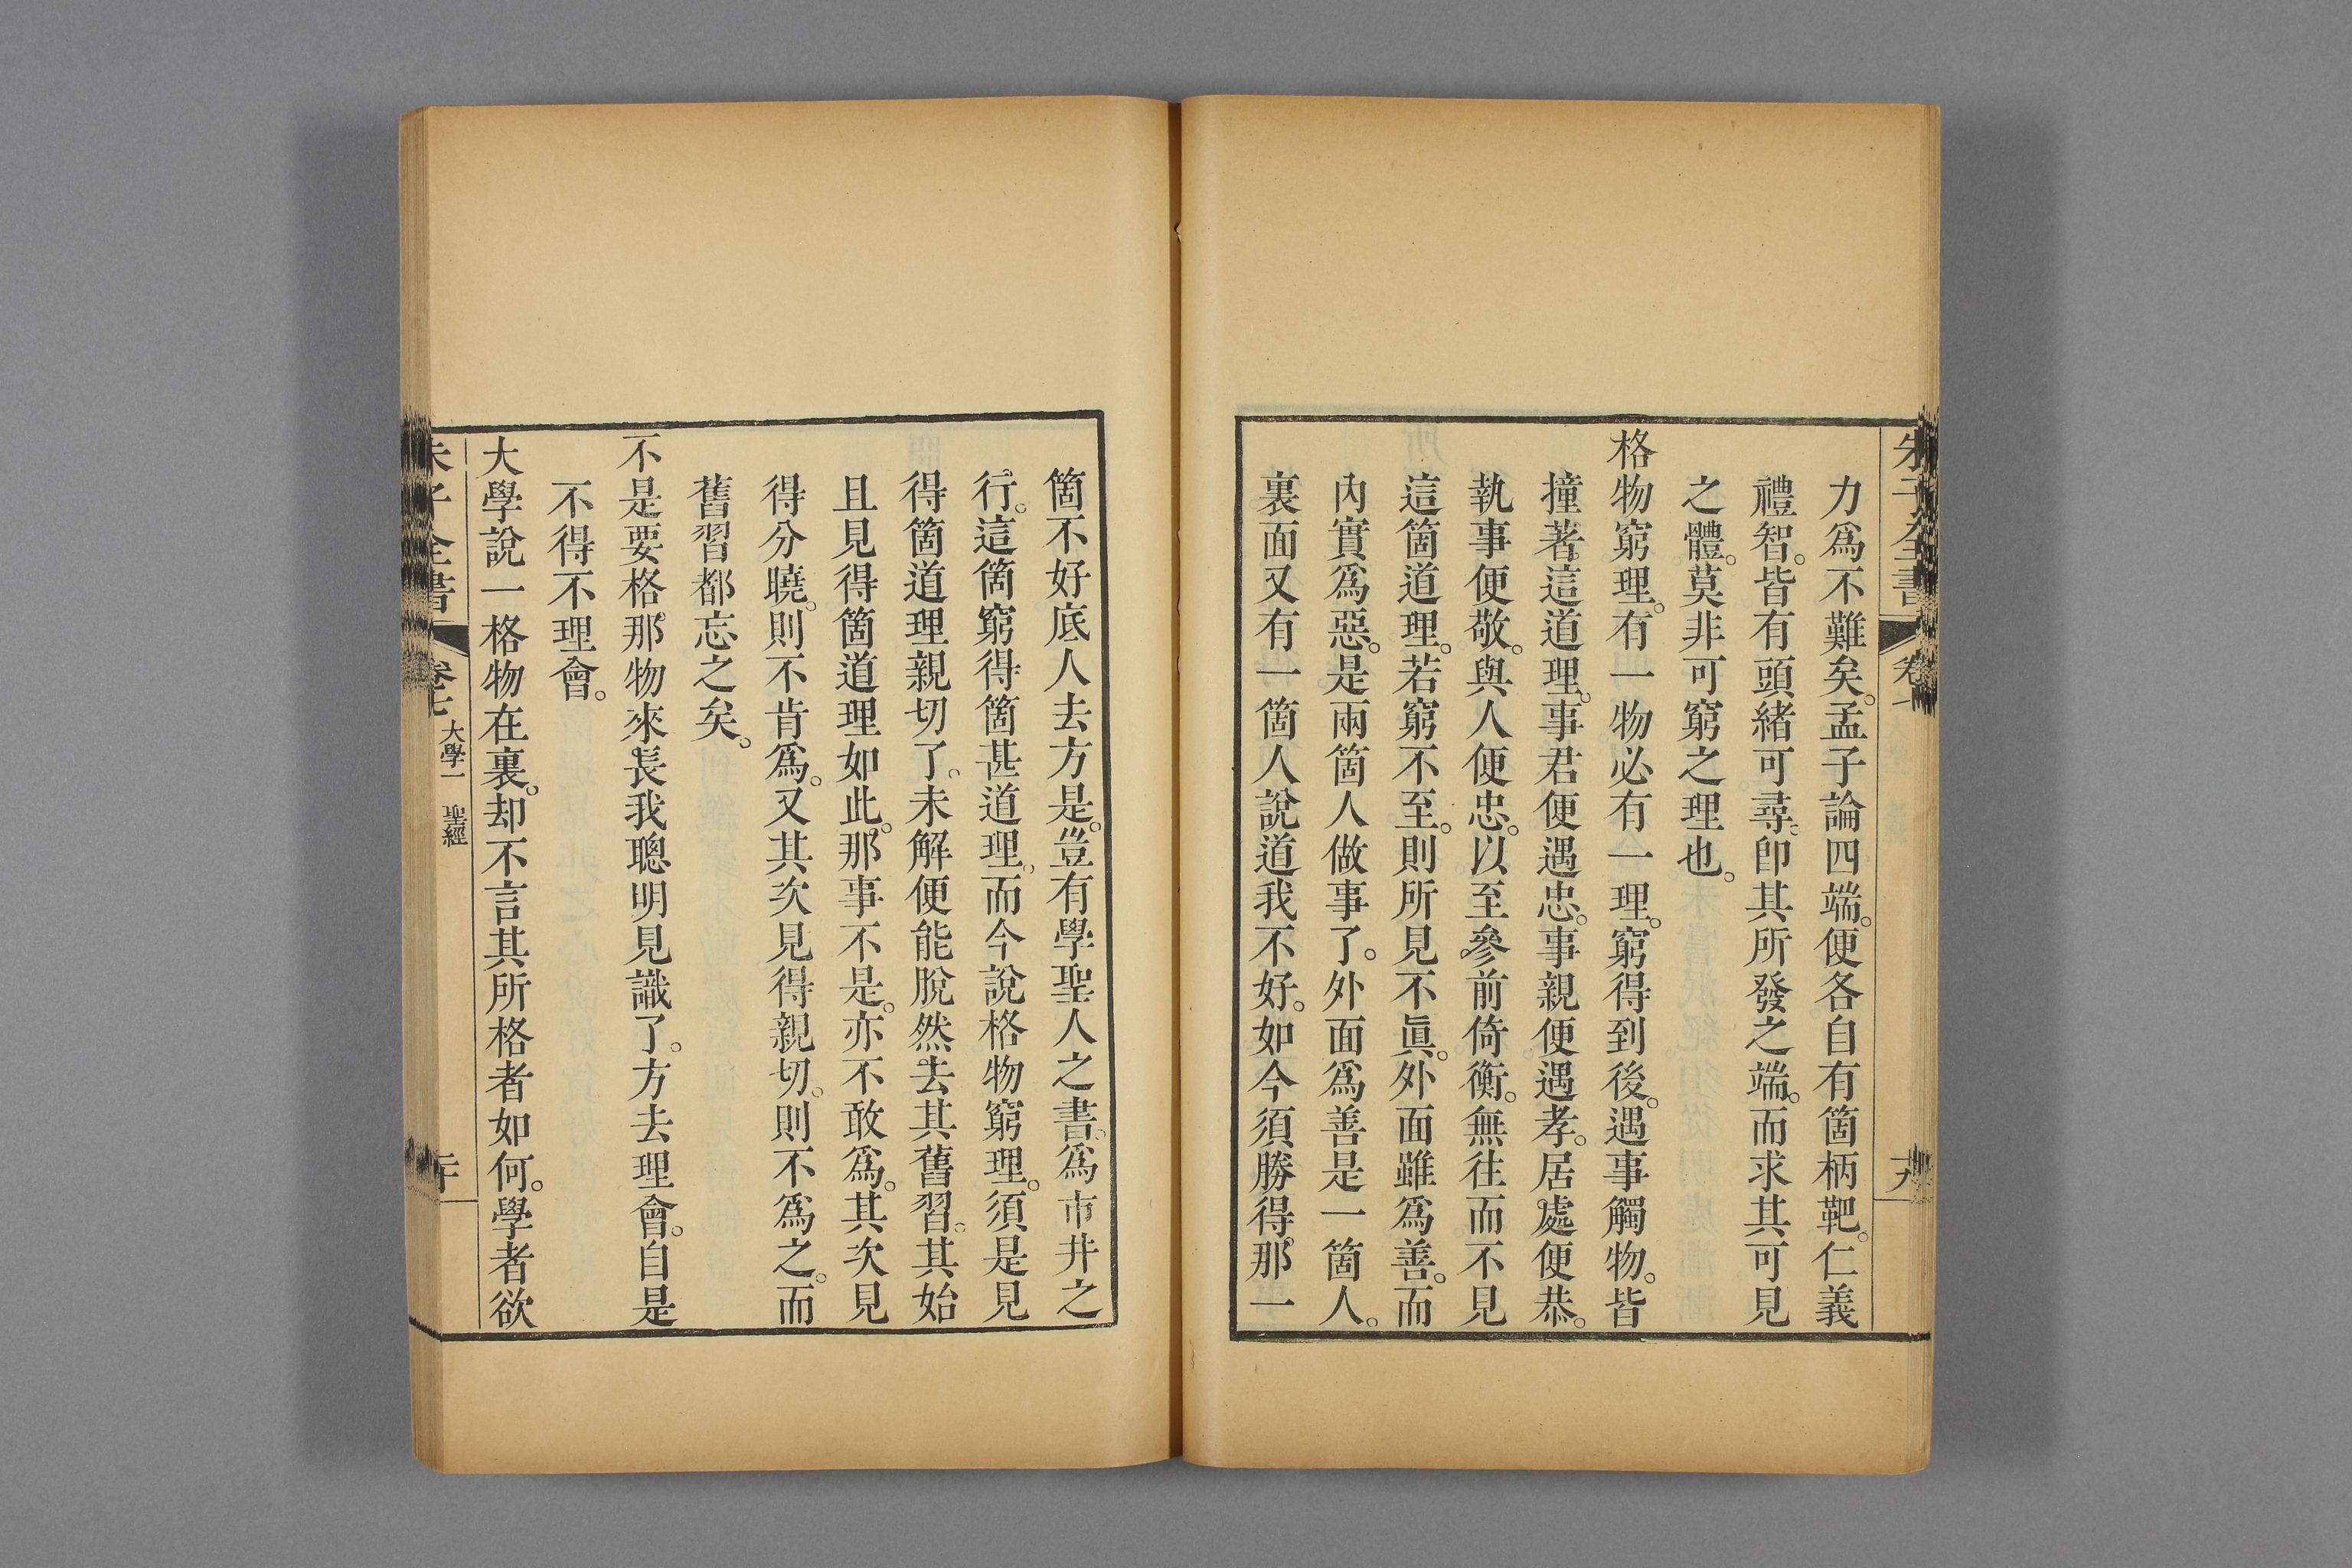 朱子全書 卷七
力爲不難矣。孟子論四端。便各自有箇柄靶。仁義
禮智。皆有頭緒可尋。卽其所發之端。而求其可見
之體。莫非可窮之理也。
格物窮理。有一物必有一理。窮得到後。遇事觸物。皆
撞著這道理。事君便遇忠。事親便遇孝。居處便恭。
執事便敬。與人便忠。以至參前倚衡。無往而不見
這箇道理。若窮不至。則所見不眞。外面雖爲善。而
內實爲惡。是兩箇人做事了。外面爲善是一箇人。
裏面又有一箇人說道我不好。如今須勝得那一
箇不好底人去方是。豈有學聖人之書。爲市井之
行。這箇窮得箇甚道理。而今說格物窮理。須是見
得箇道理親切了。未解便能脫然去其舊習。其始
且見得箇道理如此。那事不是。亦不敢爲。其次見
得分曉。則不肯爲。又其次見得親切。則不爲之。而
舊習都忘之矣。
不是要格那物來長我聰明見識了。方去理會。自是
不得不理會。
大學說一格物在裏。却不言其所格者如何。學者欲
朱子全書 卷七 大學一 聖經 二十